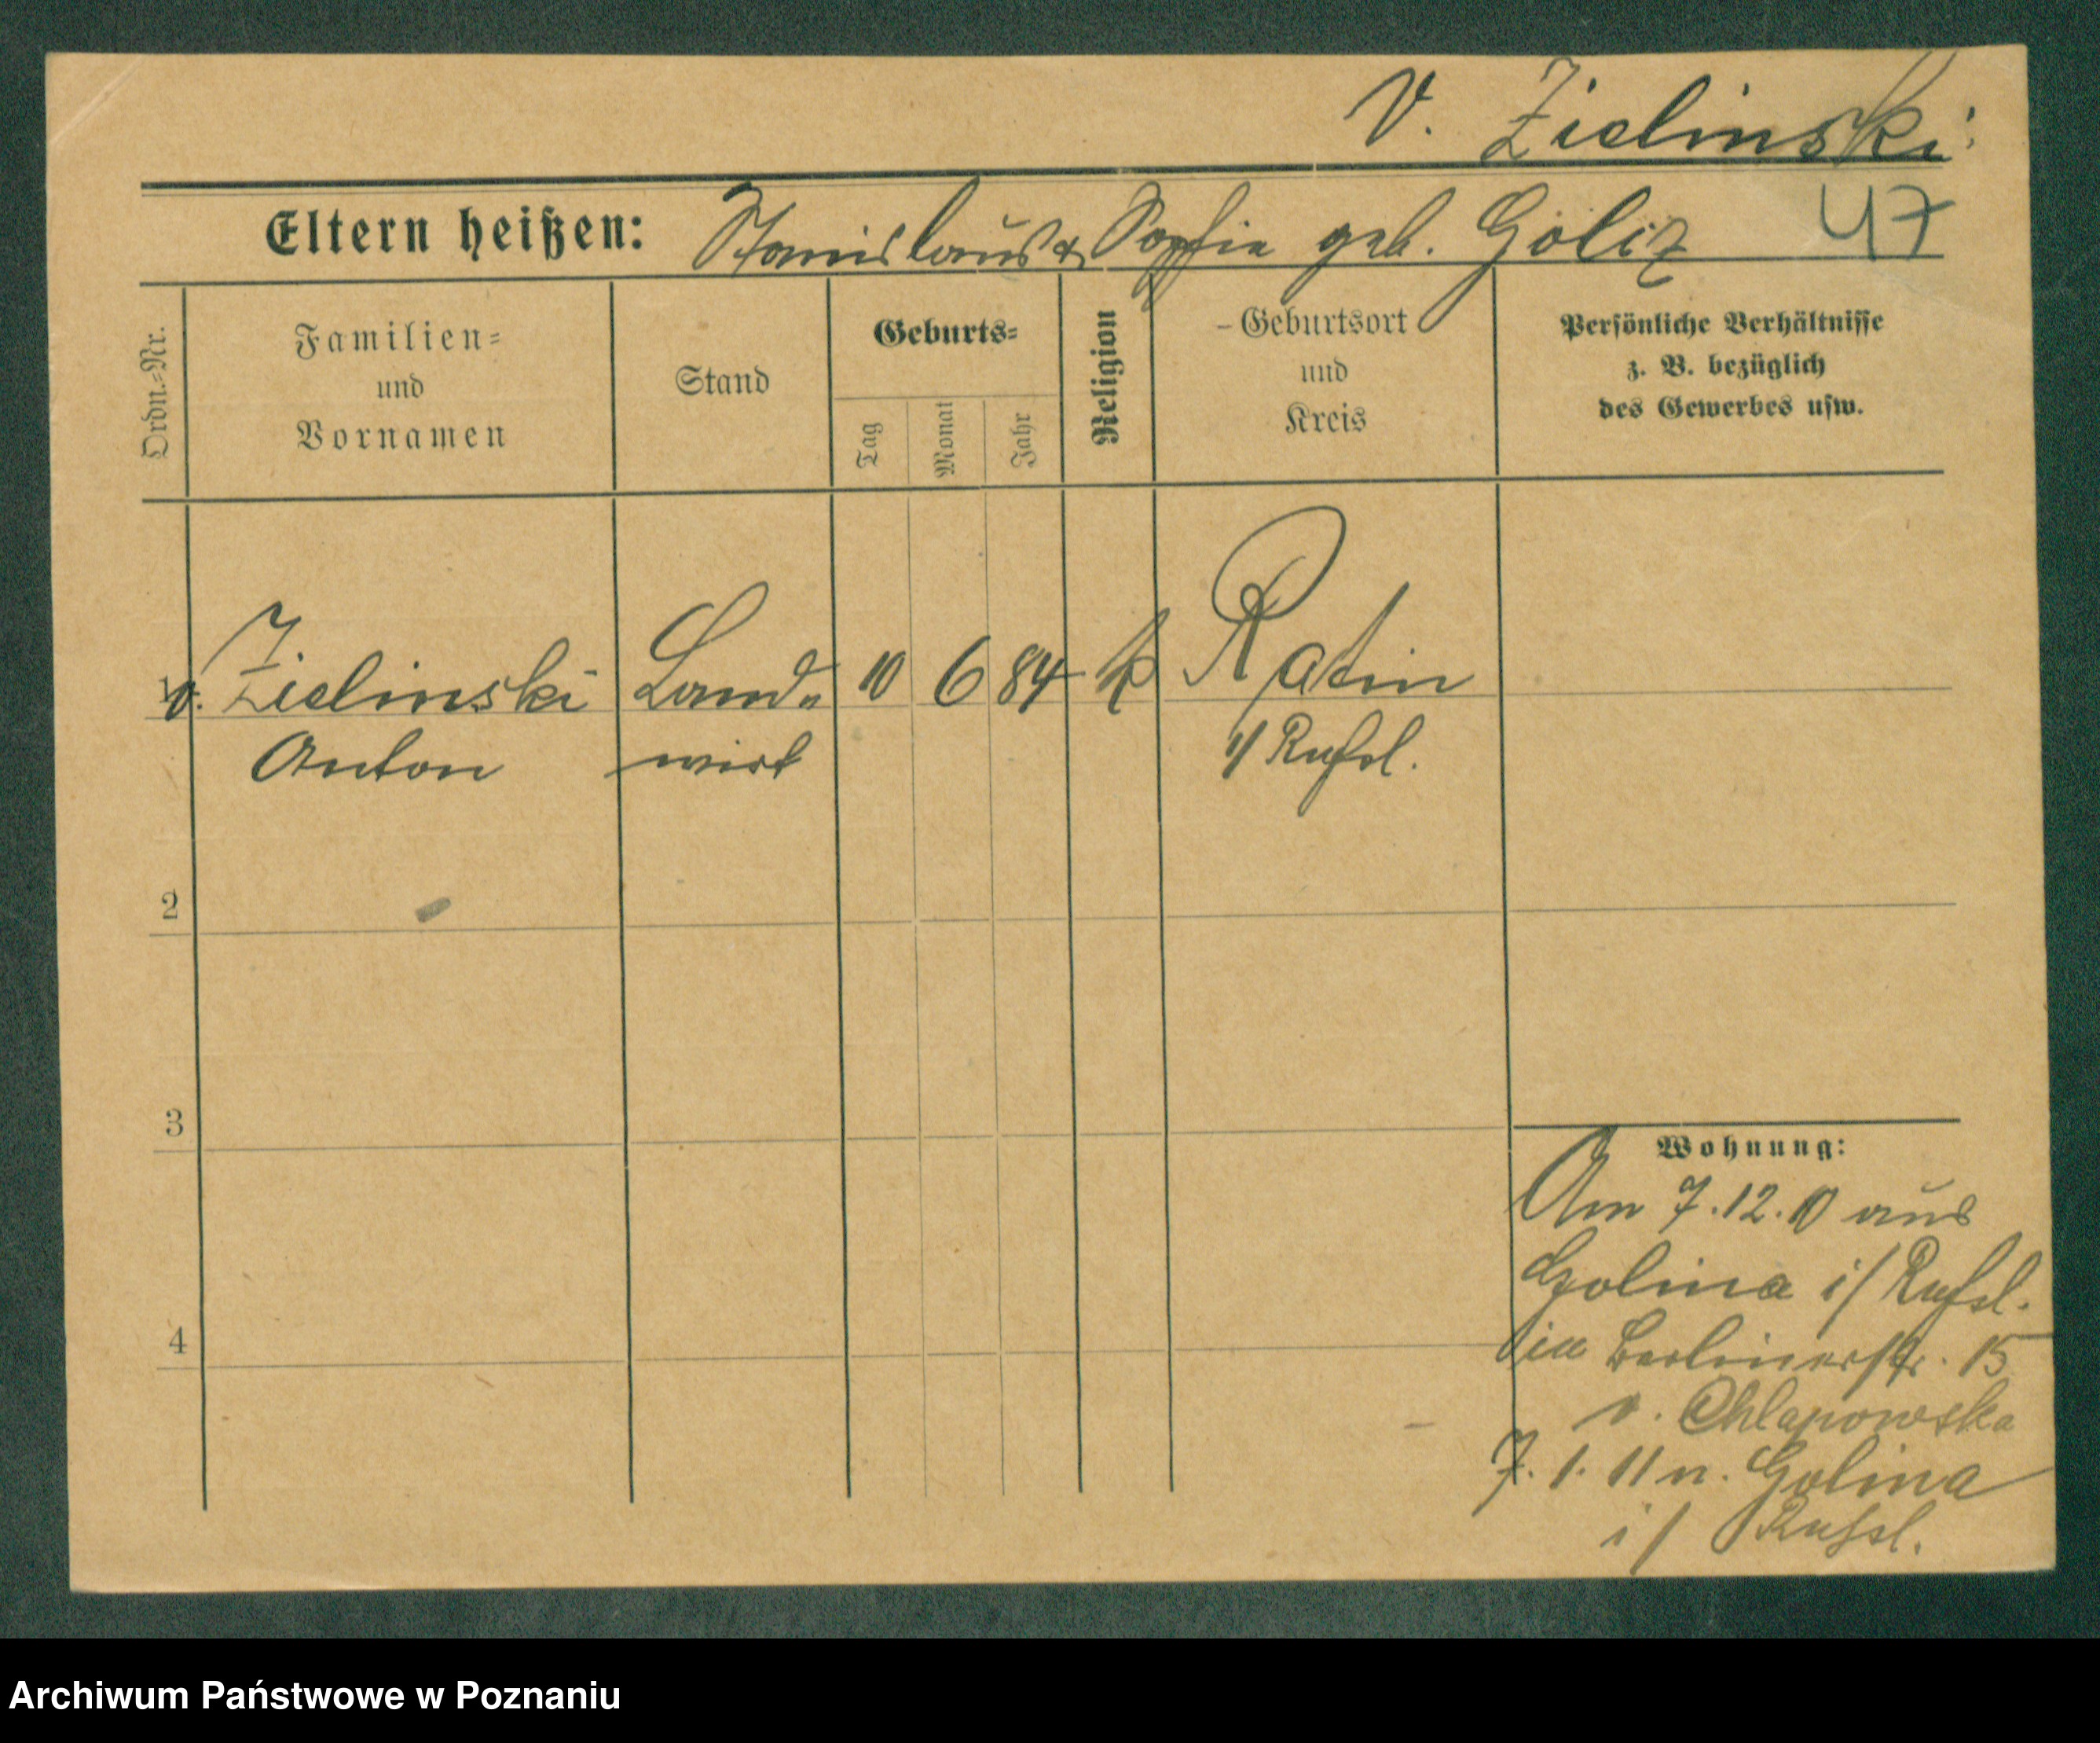 v. Zielinski
Eltern heißen: Stanislaus & Sophie geb. Goliz 47
Ordn.-Nr.
Familien-
und
Vornamen
Stand
Geburts-
Tag
Monat
Jahr
Religion
Geburtsort
und
Kreis
Persönliche Verhältnisse
z. B. bezüglich
des Gewerbes usw.
v. Zielinski Land- 10 6 84 k Ratin
Anton wirt i/ Rußl.
2
3
4
Wohnung:
Am 7.12.10 aus
Golina i/ Rußl.
in Berlinerstr. 15
v. Chlapowska
7. 1. 11 n. Golina
i/ Rußl.
Archiwum Państwowe w Poznaniu